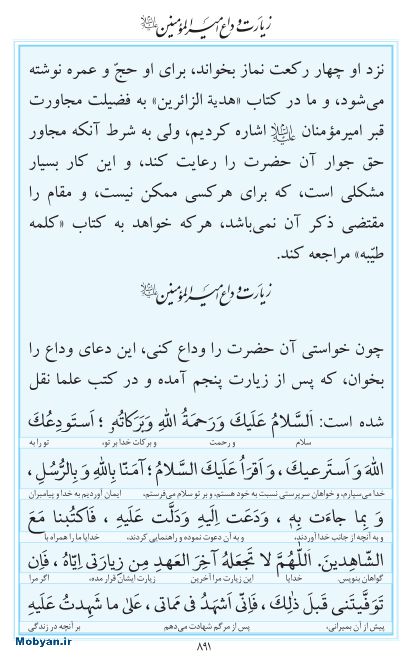 زیارت وداع امیرالمؤمنین علیه‌السلام
نزد او چهار رکعت نماز بخواند، برای او حجّ و عمره نوشته
می‌شود، و ما در کتاب «هدیة الزائرین» به فضیلت مجاورت
قبر امیرمؤمنان علیه‌السلام اشاره کردیم، ولی به شرط آنکه مجاور
حق جوار آن حضرت را رعایت کند، و این کار بسیار
مشکلی است، که برای هرکسی ممکن نیست، و مقام را
مقتضی ذکر آن نمی‌باشد، هرکه خواهد به کتاب «کلمه
طیّبه» مراجعه کند.
زیارت وداع امیرالمؤمنین علیه‌السلام
چون خواستی آن حضرت را وداع کنی، این دعای وداع را
بخوان، که پس از زیارت پنجم آمده و در کتب علما نقل
شده است: اَلسَّلامُ عَلَیكَ وَرَحمَةُ اللهِ وَبَرَكاتُهُ، اَستَودِعُكَ
سلام و رحمت و برکات خدا بر تو، تو را به
اللهَ وَاَستَرعیكَ، وَاَقرَأُ عَلَیكَ السَّلامُ؛ آمَنّا بِاللهِ وَبِالرُّسُلِ،
خدا می‌سپارم، و خواهان سرپرستی نسبت به خود هستم، و بر تو سلام می‌فرستم، ایمان آوردیم به خدا و پیامبران
وَ بِما جاءَت بِهِ، وَدَعَت اِلَیهِ وَدَلَّت عَلَیهِ، فَاكتُبنا مَعَ
و به آنچه از جانب خدا آوردند، و به آن دعوت نموده و راهنمایی کردند، خدایا ما را همراه با
الشّاهِدینَ. اَللّهُمَّ لا تَجعَلهُ آخِرَ العَهدِ مِن زِیارَتی اِیّاهُ، فَاِن
گواهان بنویس. خدایا این زیارت مرا آخرین زیارت ایشان قرار مده، اگر مرا
تَوَفَّیتَنی قَبلَ ذٰلِكَ، فَاِنّی اَشهَدُ فی مَماتی، عَلیٰ ما شَهِدتُ عَلَیهِ
پیش از آن بمیرانی، پس از مرگم شهادت می‌دهم بر آنچه در زندگی
۸۹۱
Mobyan.ir